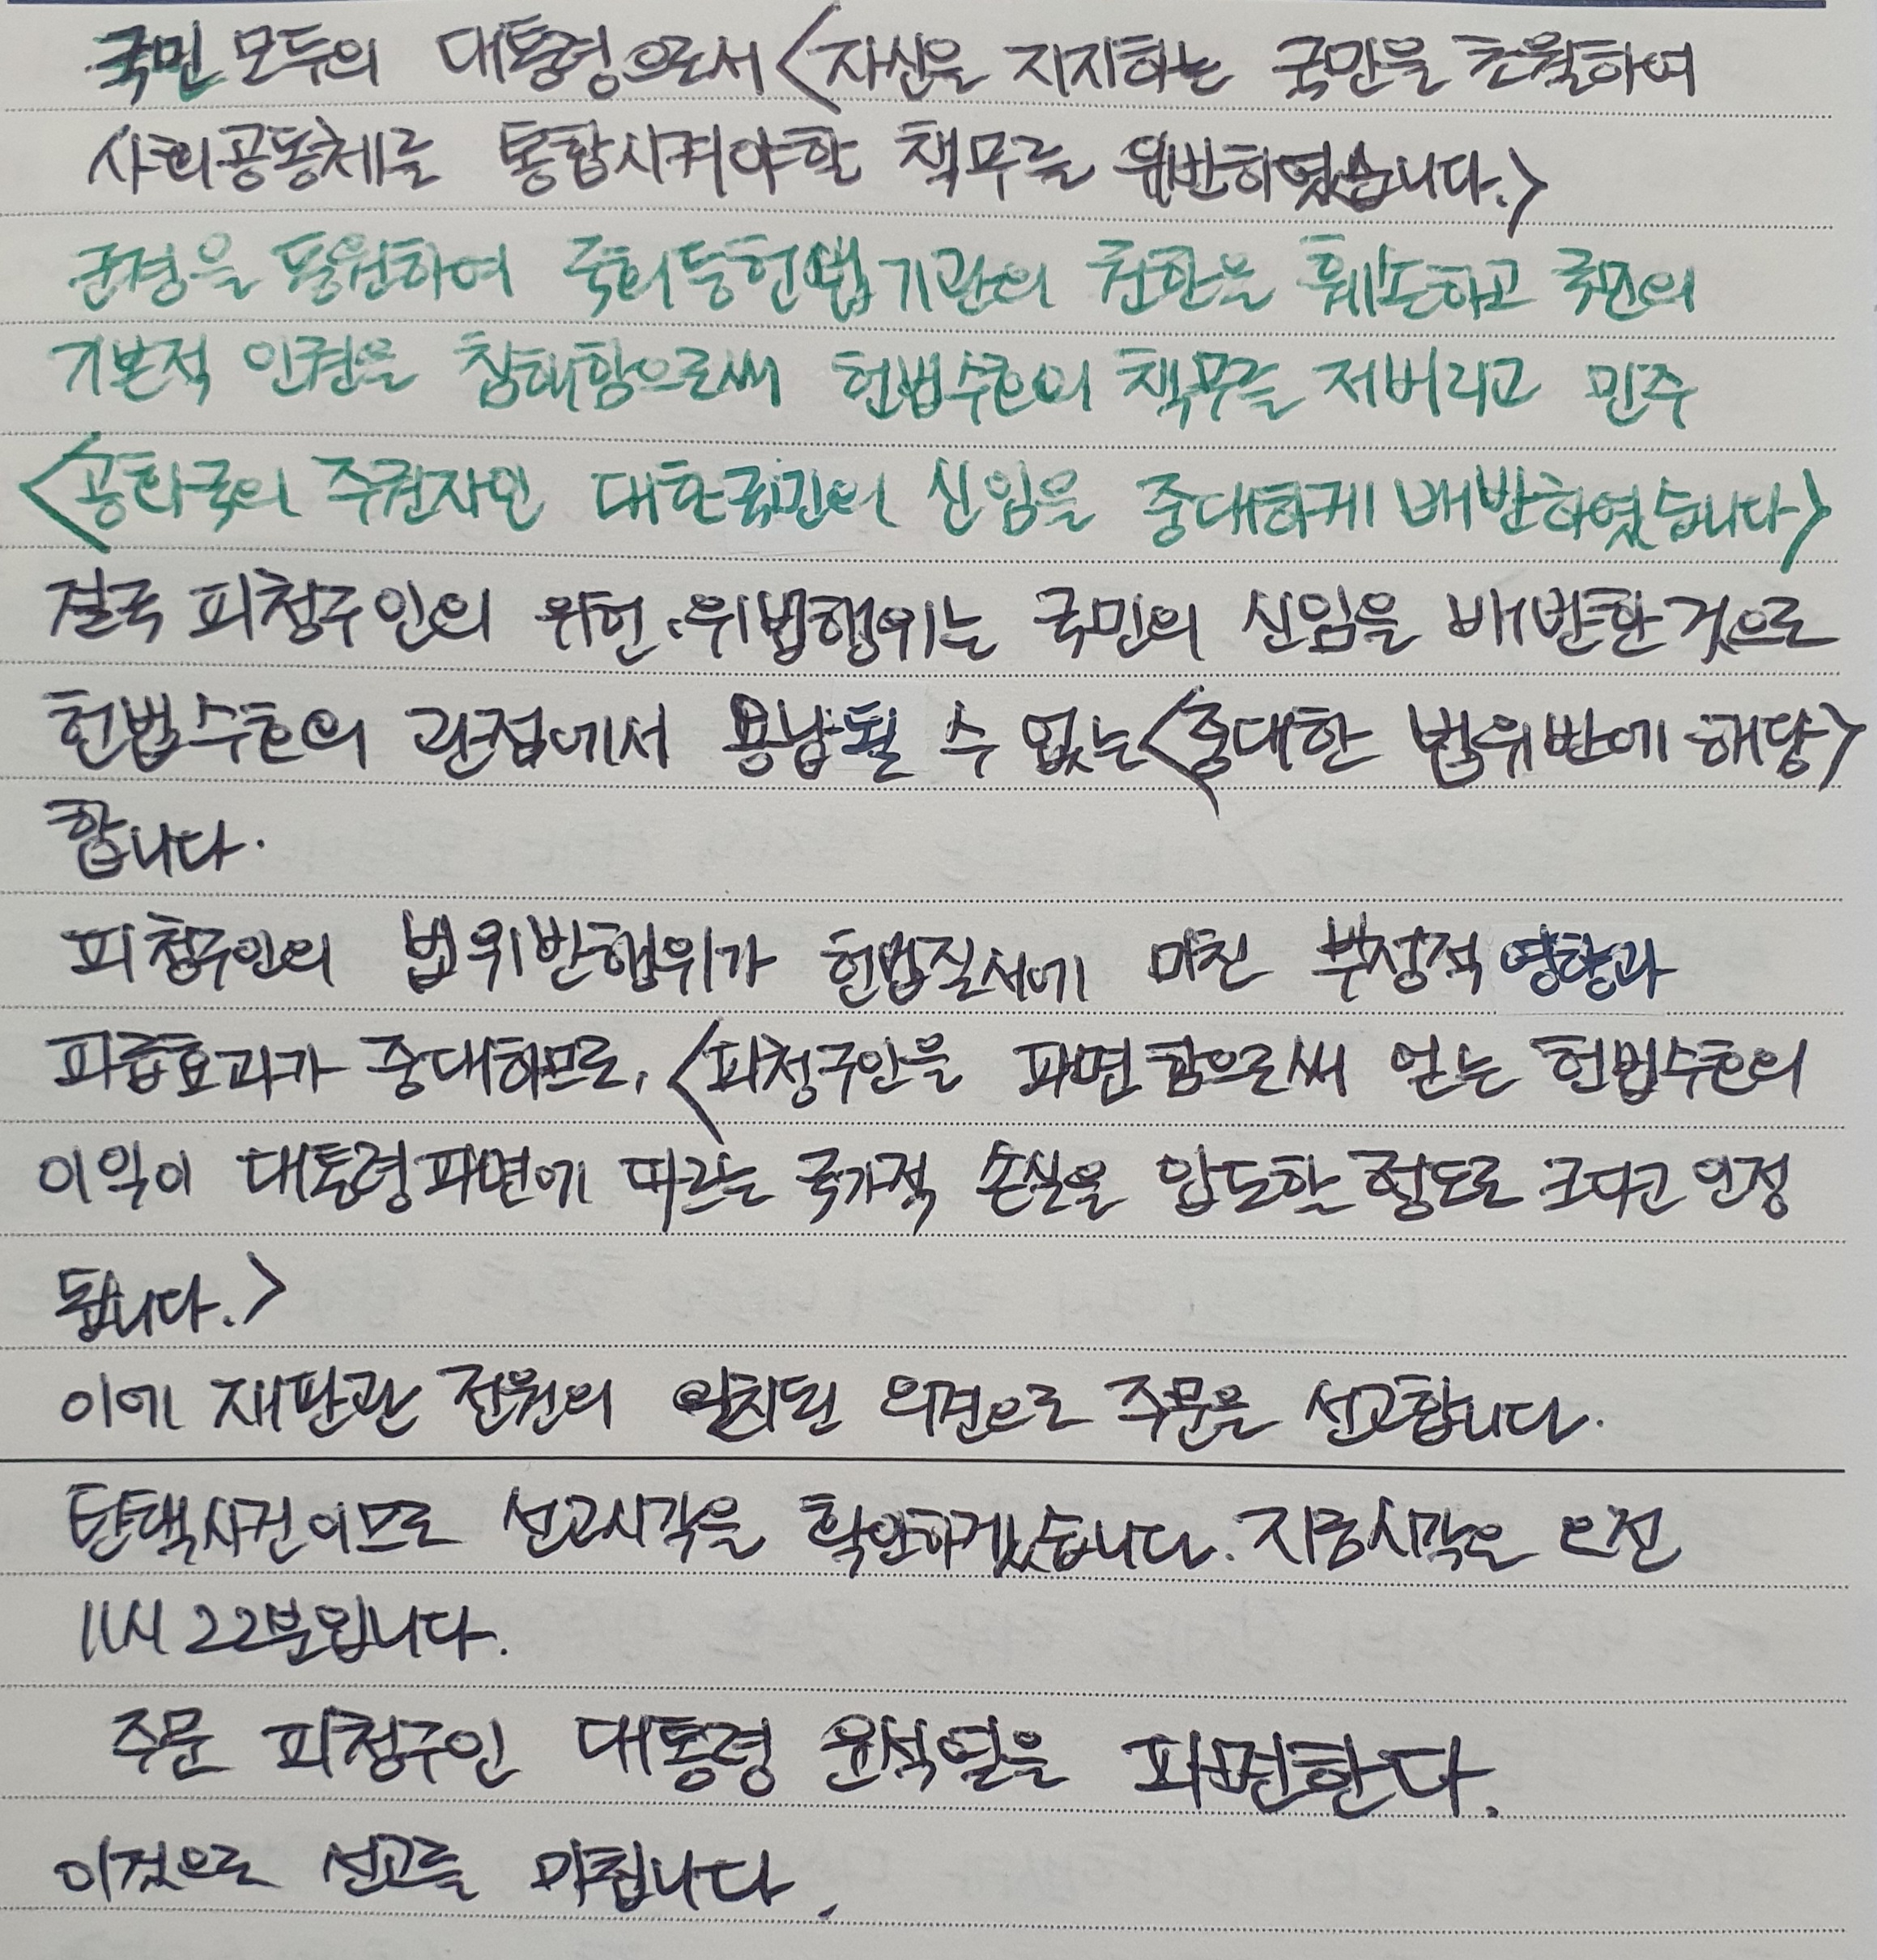 국민 모두의 대통령으로서 <자신을 지지하는 국민을 초월하여
사회공동체를 통합시켜야할 책무를 위반하였습니다.>
군경을 동원하여 국회등헌법기관의 권한을 훼손하고 국민의
기본적 인권을 침해함으로써 헌법수호의 책무를 저버리고 민주
<공화국의 주권자인 대한국민의 신임을 중대하게 배반하였습니다>
결국 피청구인의 위헌·위법행위는 국민의 신임을 배반한 것으로
헌법수호의 관점에서 용납될 수 없는 <중대한 법위반에 해당>
합니다.
피청구인의 법위반행위가 헌법질서에 미친 부정적 영향과
파급효과가 중대하므로, <피청구인을 파면함으로써 얻는 헌법수호의
이익이 대통령파면에 따르는 국가적 손실을 압도할 정도로 크다고 인정
됩니다.>
이에 재판관 전원의 일치된 의견으로 주문을 선고합니다.
탄핵사건이므로 선고시각을 확인하겠습니다. 지금시각은 오전
11시 22분입니다.
주문 피청구인 대통령 윤석열을 파면한다.
이것으로 선고를 마칩니다.